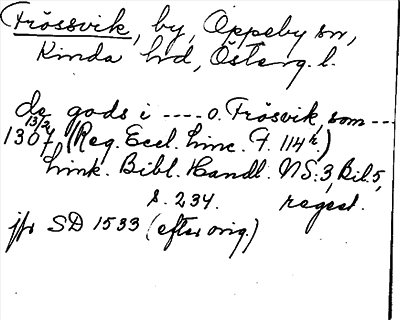 Frössvik, by, Oppeby sn,
Kinda hd, Österg. l.
de gods i ---- o. Frösvik, som ---
13/2
1307 (Reg. Eccl. Linc. F. 114 r.)
Link. Bibl. Handl. NS:3, Bil. 5,
s. 234. regest.
jfr SD 1533 (efter orig.)